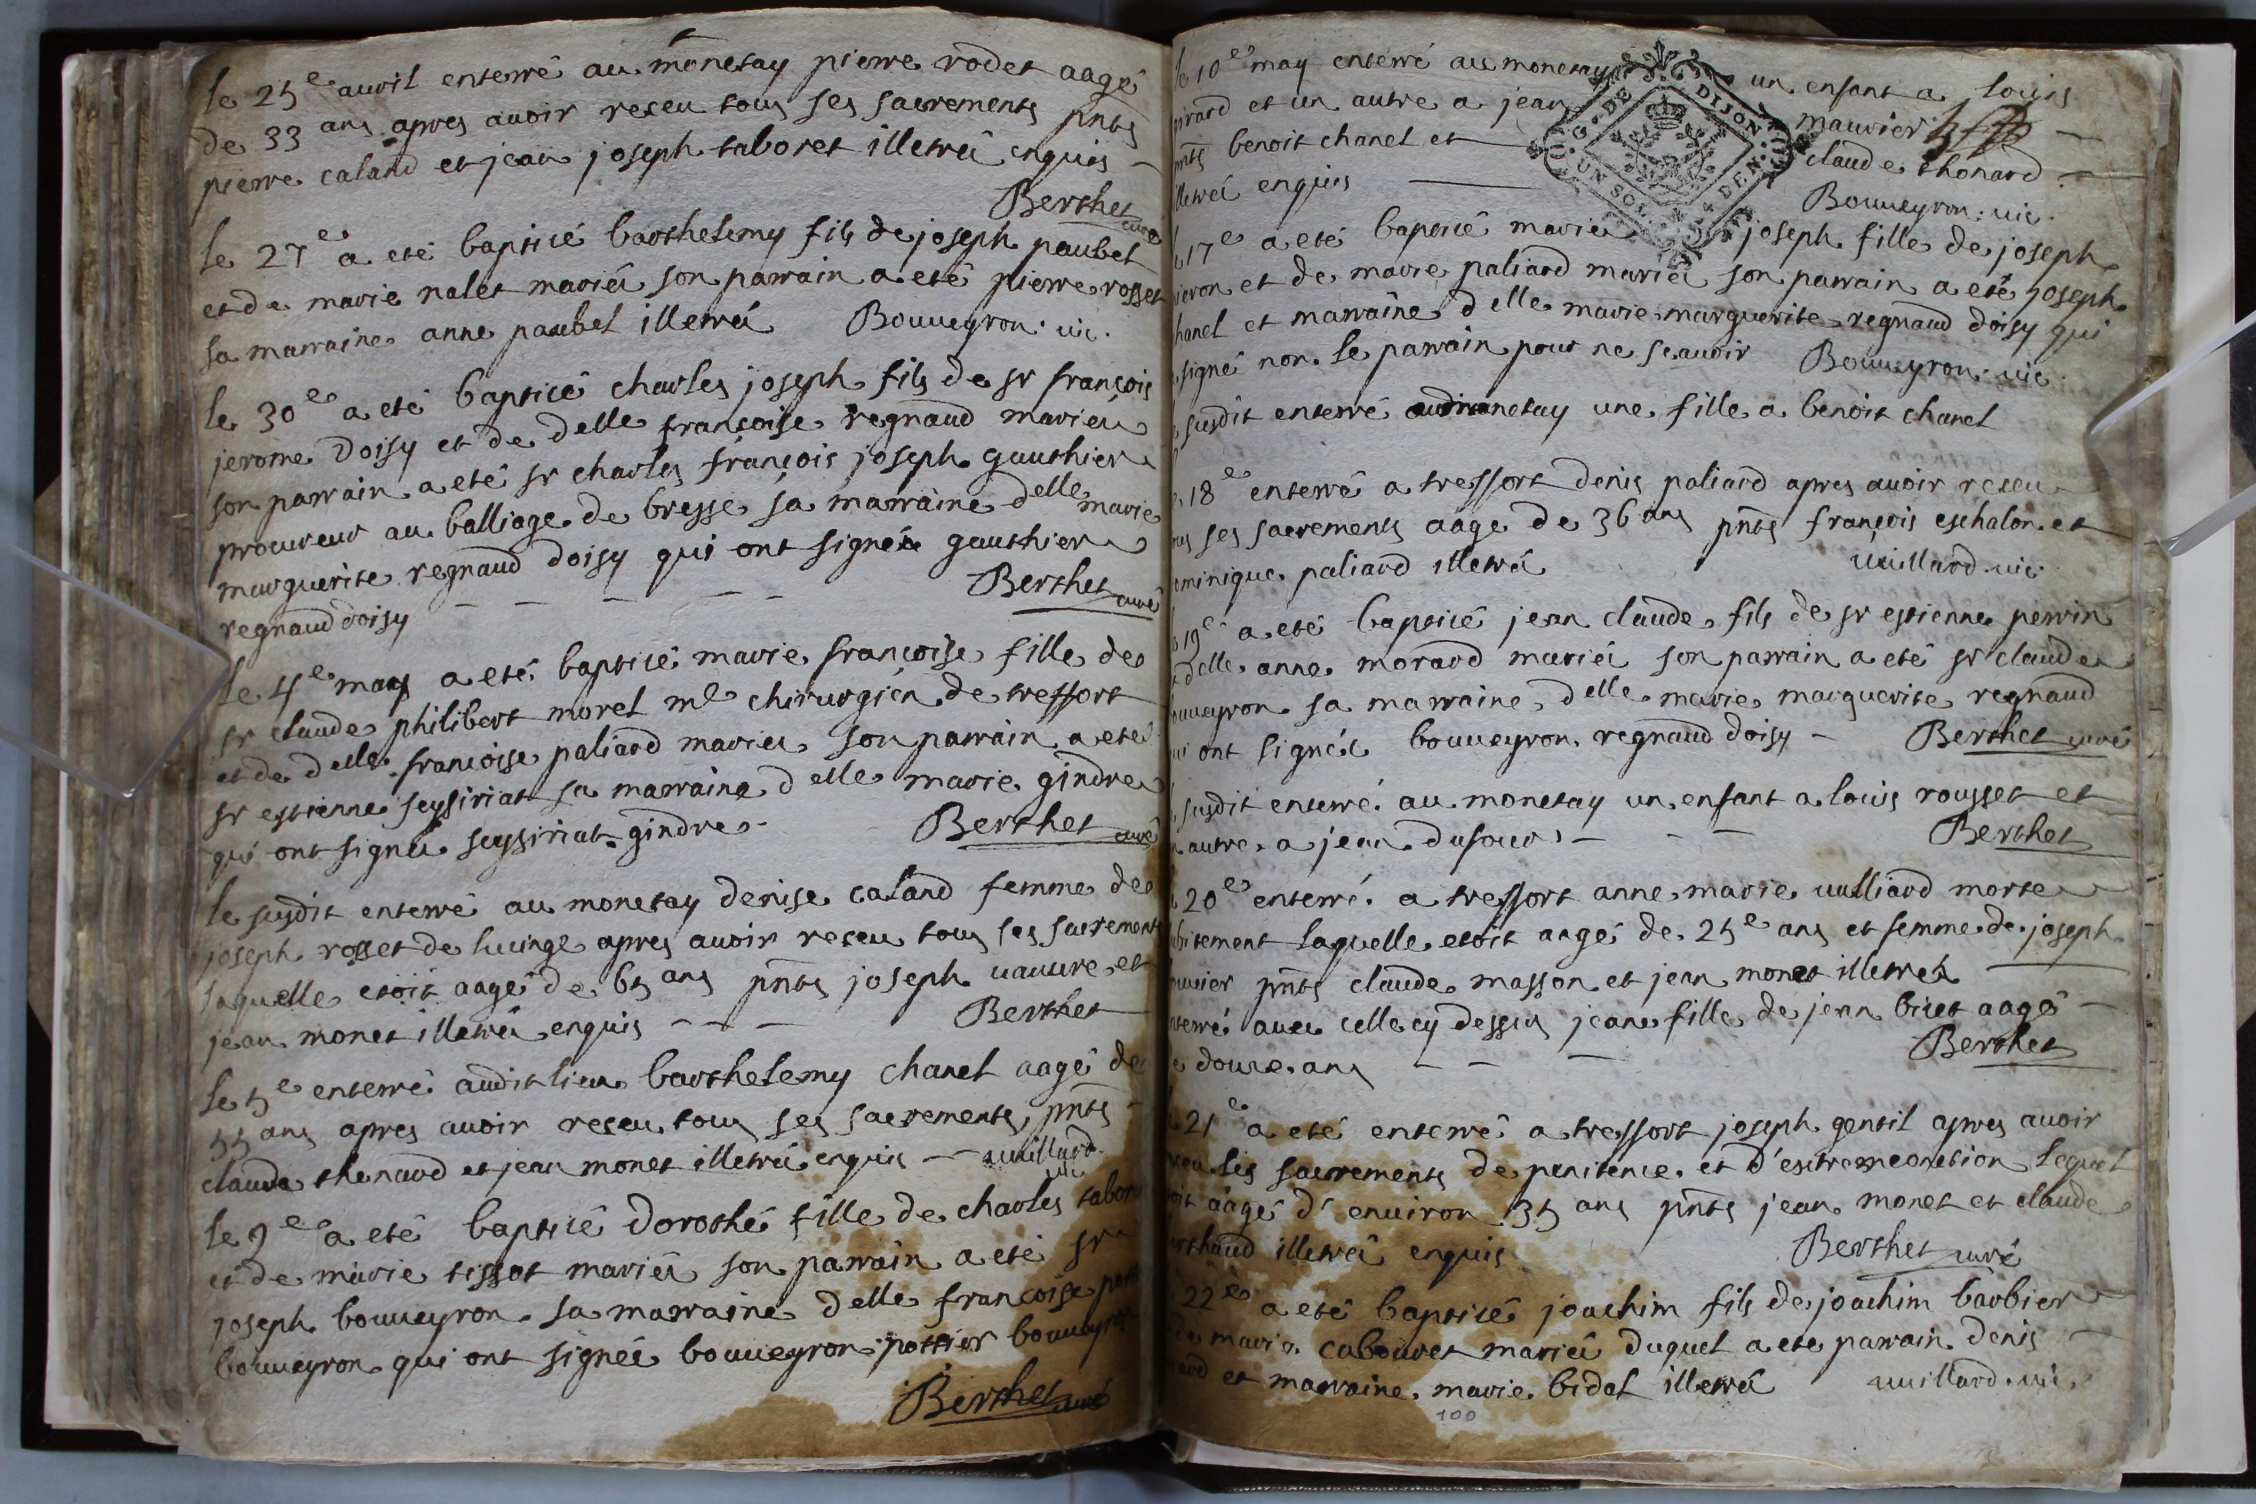 le 25e auril enterré au monetay pierre rodet aagé
de 33 ans apres auoir receu tous ses sacrements pnts
pierre caland et jean joseph taboret illetrés enquis
Berthet curé
le 27e a eté baptisé barthelemy fils de joseph paubel
et de marie nalet mariés son parrain a eté pierre rosset
sa marraine anne paubel illetrés Bouueyron. uic.
le 30e a eté baptisé charles joseph fils de sr françois
jerome Doisy et de delle françoise regnaud mariés
son parrain a eté sr charles françois joseph gauthier
procureur au balliage de bresse sa marraine delle marie
marguerite regnaud doisy qui ont signés gauthier
regnaud doisy Berthet curé
le 4e may a eté baptisé marie françoise fille de
sr claude philibert morel me chirurgien de treffort
et de delle françoise paliard mariés son parrain a eté
sr estienne seysiriat sa marraine delle marie gindre
qui ont signés seyssiriat gindre Berthet curé
le susdit enterré au monetay denise caland femme de
joseph rosset de lucinge apres auoir receu tous ses sacrements
laquelle etoit aagé de 65 ans pnts joseph uauure et
jean monet illetrés enquis Berthet
le 5e enterré audit lieu barthelemy chanel aagé de
55 ans apres auoir receu tous ses sacrements pnts
claude thenard et jean monet illetrés enquis uuillard uic
le 9e a eté baptisé dorothé fille de charles
et de marie tissot mariés son parrain a eté sr
joseph bouueyron sa marraine delle françoise
bouueyron qui ont signés bouueyron pottier bouueyron
Berthet curé
le 10e may enterré au monetay un enfant a louis
pirard et un autre a jean mauuier
pnts benoit chanel et claude thonard
illetrés enquis Bouueyron. uic.
G. DE DIJON
UN SOL. N. 4 DEN.
17e a eté baptisé marie joseph fille de joseph
et de marie paliard mariés son parrain a eté joseph
chanel et marraine delle marie marguerite regnaud doisy qui
signé non le parrain pour ne scauoir Bouueyron. uic.
susdit enterré au monetay une fille a benoit chanel
18e enterré a treffort denis paliard apres auoir receu
ses sacrements aage de 36 ans pnts françois eschalon et
dominique paliard illetrés uuillard. uic.
19e a eté baptisé jean claude fils de sr estienne perrin
delle anne morard mariés son parrain a eté sr claude
bouueyron sa marraine delle marie marguerite regnaud
qui ont signés bouueyron regnaud doisy Berthet curé
susdit enterré au monetay un enfant a louis rousset et
autre a jean dufour Berthet
20e enterré a treffort anne marie uulliard morte
subitement laquelle etoit aagé de 25e ans et femme de joseph
pnts claude masson et jean monet illetrés
enterré auec celle cy dessus jeane fille de jean biset aagé
de douze ans Berthet
21e a eté enterré a treffort joseph gentil apres auoir
receu les sacrements de penitence et d'extremeontion lequel
etoit aagé d'enuiron 35 ans pnts jean monet et claude
illetrés enquis Berthet curé
22e a eté baptisé joachim fils de joachim barbier
de marie cabouret mariés duquel a eté parrain denis
et marraine marie bidal illetrés uuillard. uic.
100